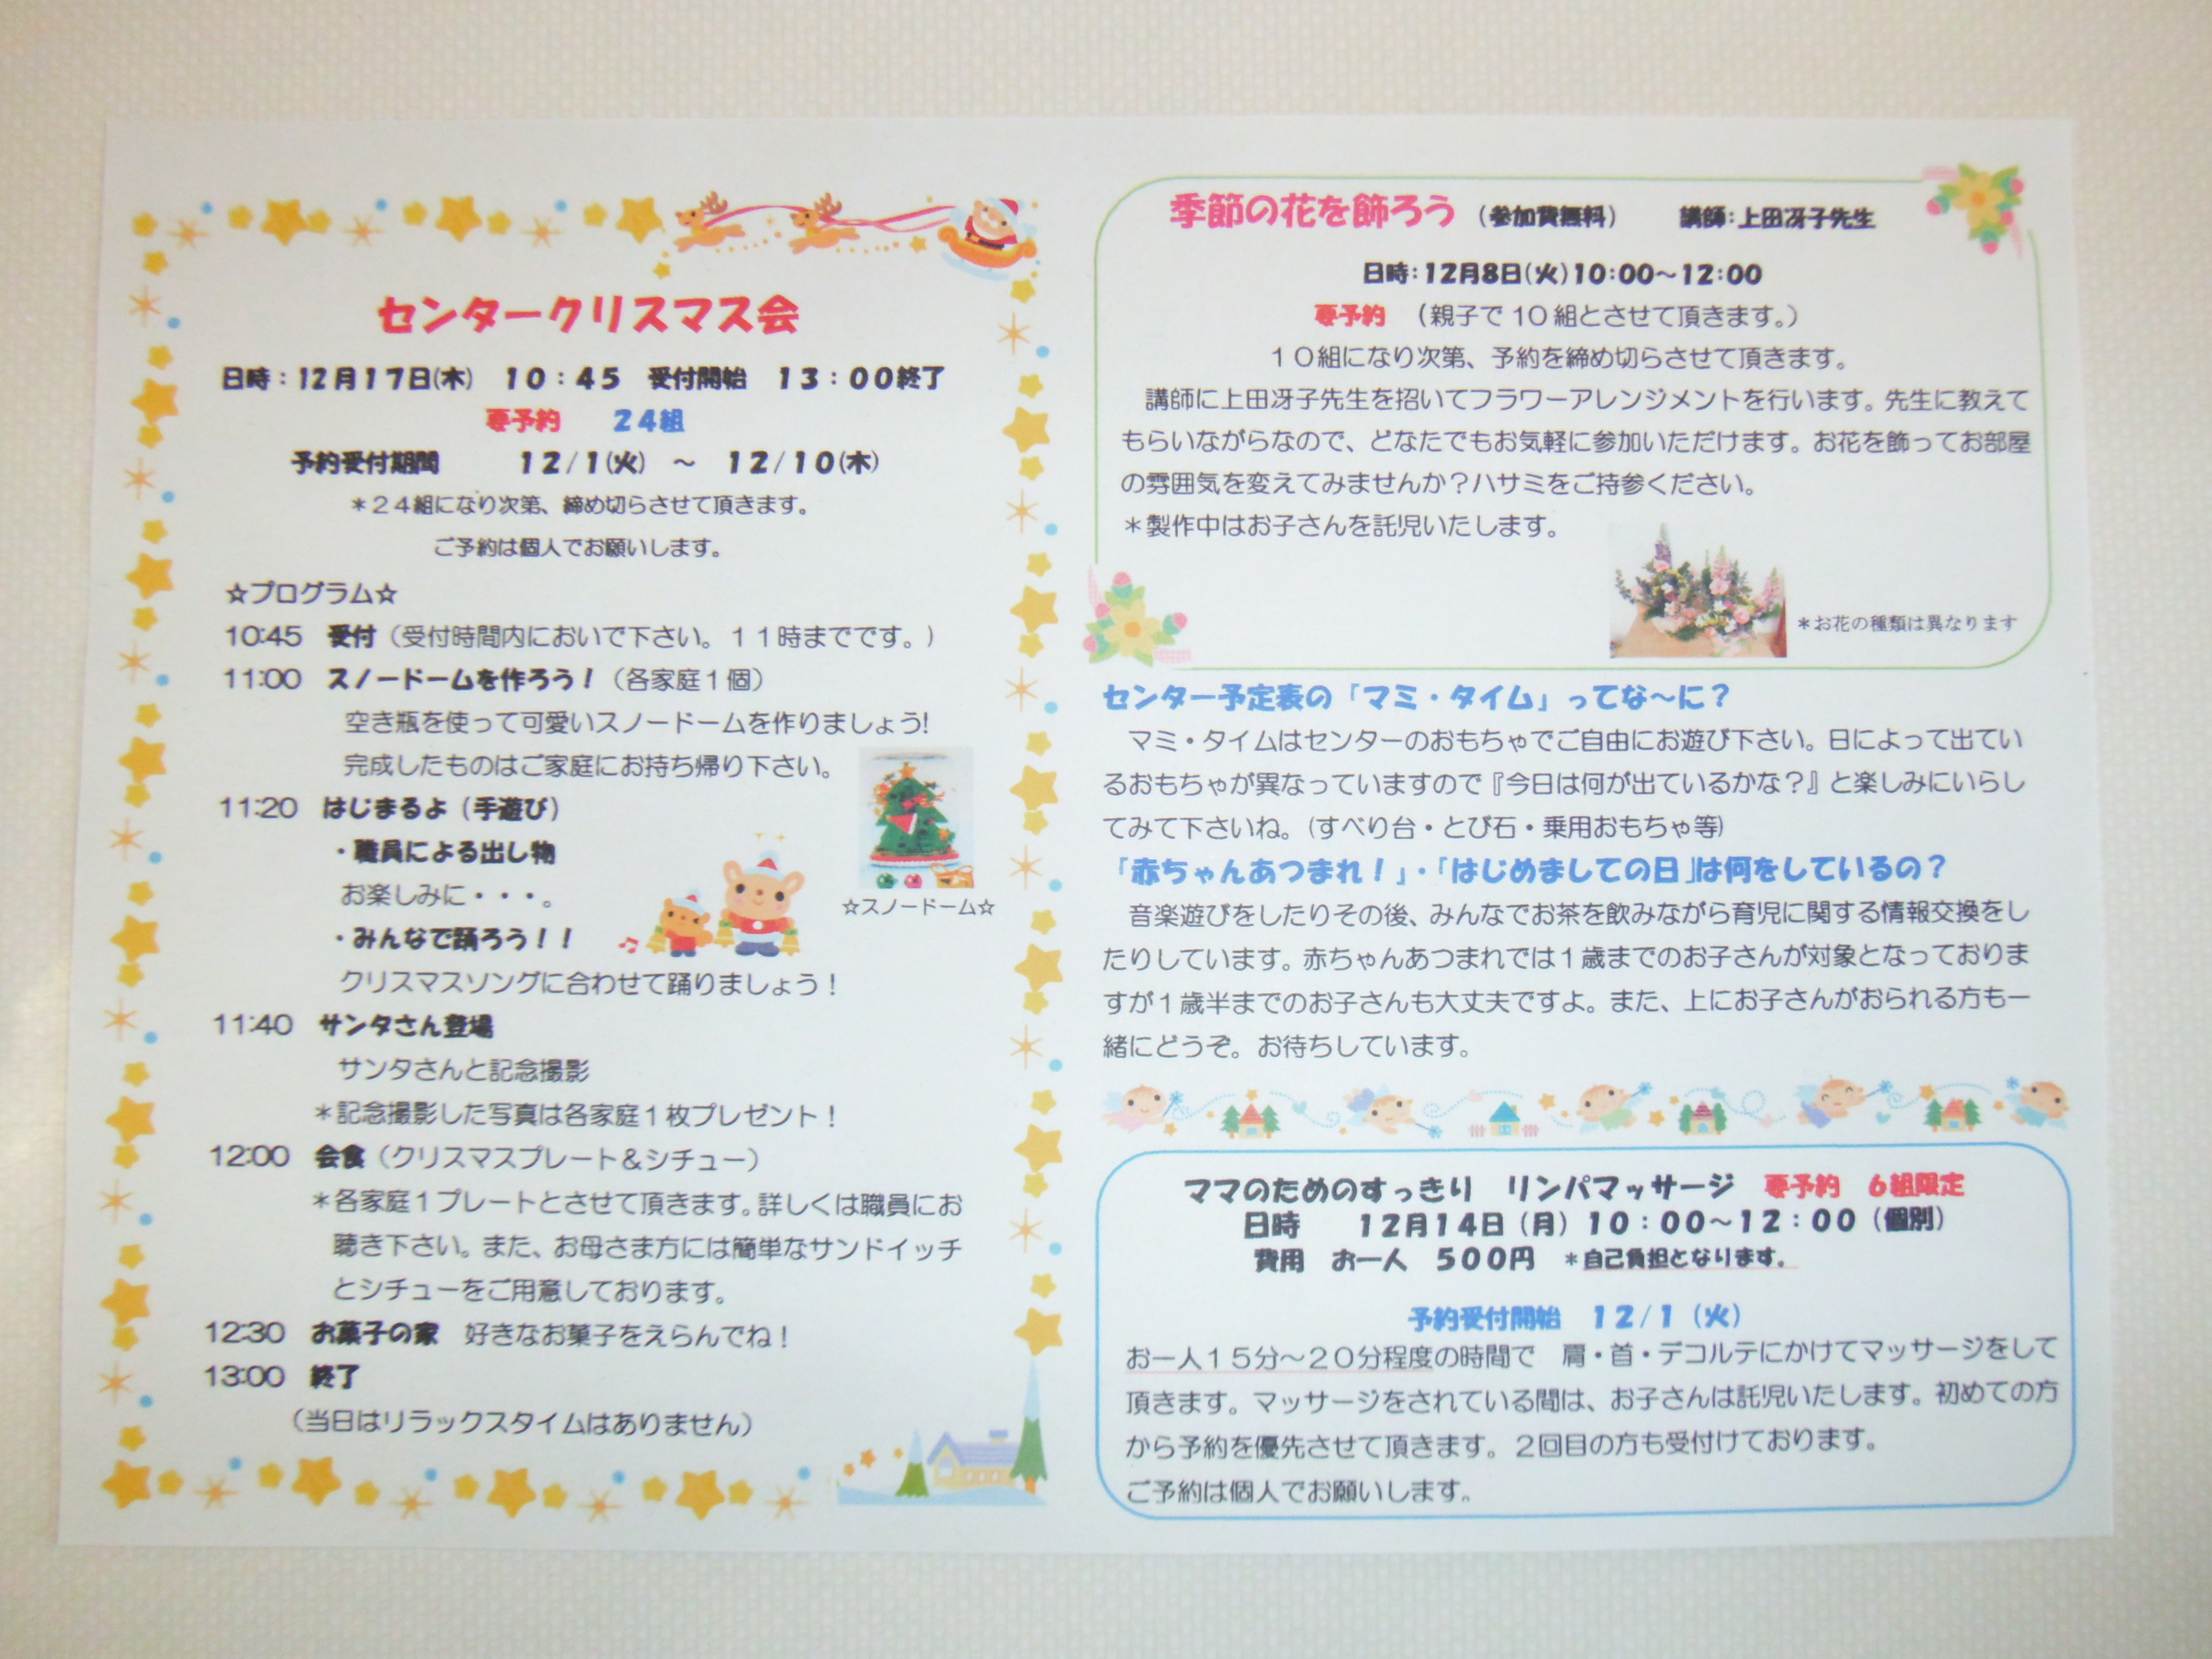 センタークリスマス会
日時：12月17日(木)　10：45　受付開始　13：00終了
要予約　24組
予約受付期間　12/1(火)　～　12/10(木)
＊24組になり次第、締め切らさせて頂きます。
ご予約は個人でお願いします。
☆プログラム☆
10:45　受付（受付時間内においで下さい。11時までです。）
11:00　スノードームを作ろう！（各家庭1個）
空き瓶を使って可愛いスノードームを作りましょう!
完成したものはご家庭にお持ち帰り下さい。
11:20　はじまるよ（手遊び）
・職員による出し物
お楽しみに・・・。
☆スノードーム☆
・みんなで踊ろう！！
クリスマスソングに合わせて踊りましょう！
11:40　サンタさん登場
サンタさんと記念撮影
＊記念撮影した写真は各家庭1枚プレゼント！
12:00　会食（クリスマスプレート＆シチュー）
＊各家庭1プレートとさせて頂きます。詳しくは職員にお
聴き下さい。また、お母さま方には簡単なサンドイッチ
とシチューをご用意しております。
12:30　お菓子の家　好きなお菓子をえらんでね！
13:00　終了
（当日はリラックスタイムはありません）
季節の花を飾ろう（参加費無料）　講師：上田冴子先生
日時：12月8日(火)10:00～12:00
要予約　（親子で10組とさせて頂きます。）
10組になり次第、予約を締め切らさせて頂きます。
講師に上田冴子先生を招いてフラワーアレンジメントを行います。先生に教えて
もらいながらなので、どなたでもお気軽に参加いただけます。お花を飾ってお部屋
の雰囲気を変えてみませんか？ハサミをご持参ください。
＊製作中はお子さんを託児いたします。
＊お花の種類は異なります
センター予定表の「マミ・タイム」ってな～に？
マミ・タイムはセンターのおもちゃでご自由にお遊び下さい。日によって出てい
るおもちゃが異なっていますので『今日は何が出ているかな？』と楽しみにいらし
てみて下さいね。(すべり台・とび石・乗用おもちゃ等)
「赤ちゃんあつまれ！」・「はじめましての日」は何をしているの？
音楽遊びをしたりその後、みんなでお茶を飲みながら育児に関する情報交換をし
たりしています。赤ちゃんあつまれでは1歳までのお子さんが対象となっておりま
すが1歳半までのお子さんも大丈夫ですよ。また、上にお子さんがおられる方も一
緒にどうぞ。お待ちしています。
ママのためのすっきり　リンパマッサージ　要予約　6組限定
日時　12月14日（月）10：00～12：00（個別）
費用　お一人　500円　＊自己負担となります。
予約受付開始　12/1（火）
お一人15分～20分程度の時間で　肩・首・デコルテにかけてマッサージをして
頂きます。マッサージをされている間は、お子さんは託児いたします。初めての方
から予約を優先させて頂きます。2回目の方も受付けております。
ご予約は個人でお願いします。